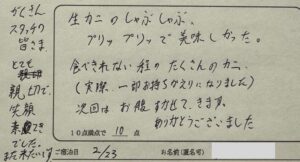 生カニのしゃぶしゃぶ、
プリップリッで美味しかった。
食べきれない程のたくさんのカニ、
(実際、一部お持ちかえりになりました)
次回はお腹すかせてきます。
ありがとうございました
10点満点で 10 点
ご宿泊日 2/23
お名前(匿名可)
がくさん
スタッフの
皆さま
とても
親切で、
笑顔
素敵
でした。
また来たいです